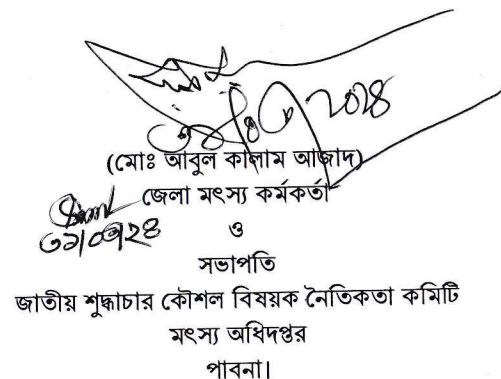 (মোঃ আবুল কালাম আজাদ)
জেলা মৎস্য কর্মকর্তা
ও
সভাপতি
জাতীয় শুদ্ধাচার কৌশল বিষয়ক নৈতিকতা কমিটি
মৎস্য অধিদপ্তর
পাবনা।